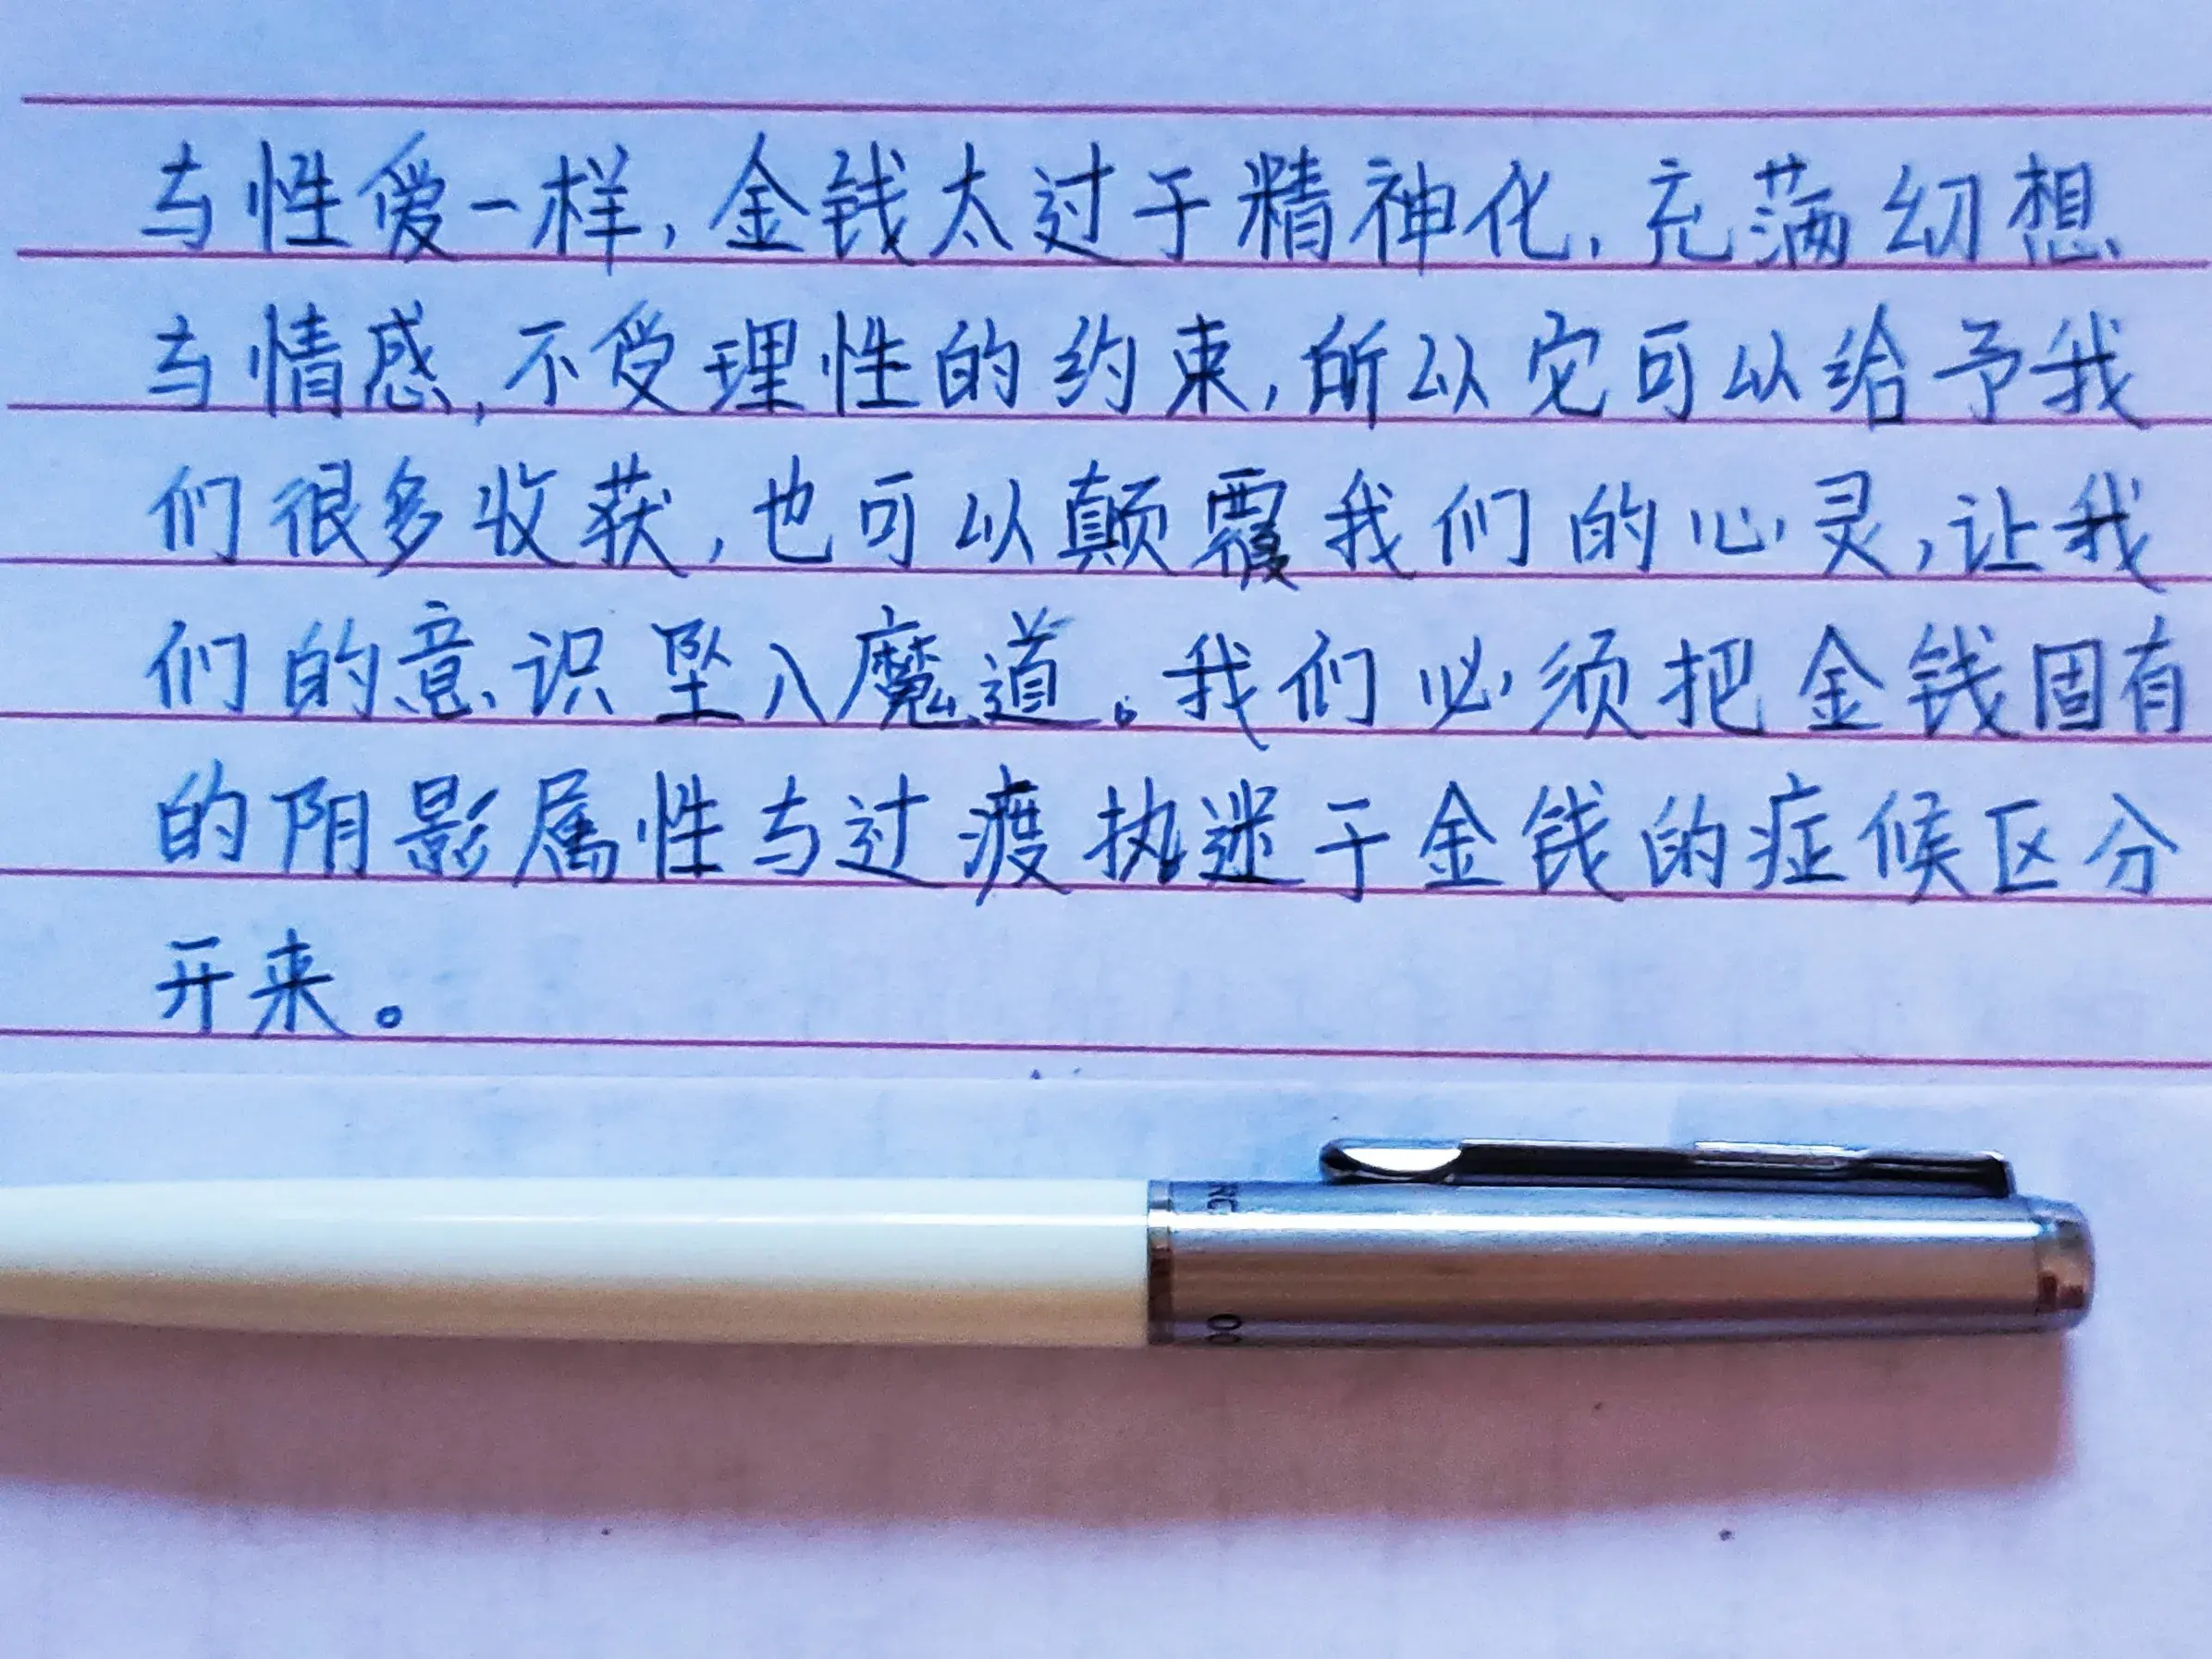 与性爱一样，金钱太过于精神化，充满幻想
与情感，不受理性的约束，所以它可以给予我
们很多收获，也可以颠覆我们的心灵，让我
们的意识坠入魔道。我们必须把金钱固有
的阴影属性与过渡执迷于金钱的症候区分
开来。